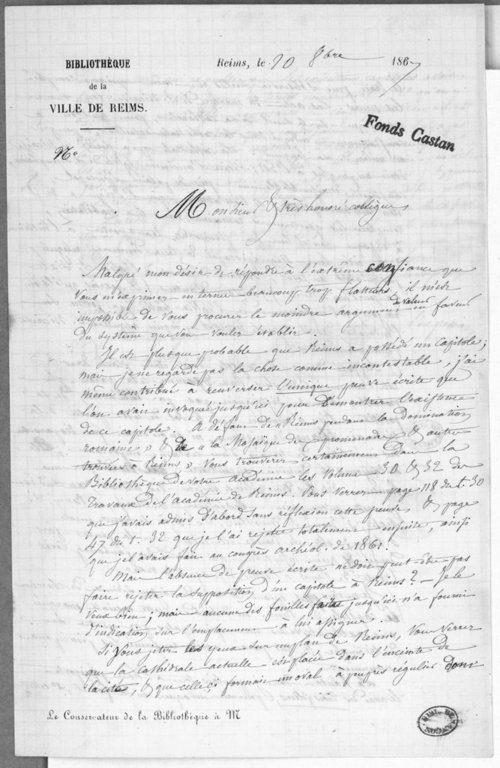 BIBLIOTHÈQUE
de la
VILLE DE REIMS.
Reims, le 20 8bre 1867
Fonds Castan
No
Monsieur & très honoré collègue,
Malgré mon désir de répondre à l'extrême confiance que
vous m'exprimez en terme beaucoup trop flatteurs, il m'est
impossible de vous procurer le moindre argument de valeur en faveur
du système que vous voulez établir.
Il est plus que probable que Reims a possédé un capitole;
mais je ne regarde pas la chose comme incontestable, j'ai
même contribué à renverser l'unique preuve écrite que
l'on avait invoquée jusqu'ici pour démontrer l'existence
de ce capitole. A défaut de « Reims pendant la domination
romaine » & de « la Mosaïque des promenades & autres
trouvées à Reims » vous trouverez certainement dans la
Bibliothèque de votre académie les volumes 30 & 32 des
Travaux de l'académie de Reims. Vous verrez page 118 du t. 30
que j'avais admis d'abord sans réflexion cette preuve, & page
47 du t. 32 que je l'ai rejetée totalement ensuite, ainsi
que je l'avais fait au congrès archéol. de 1861.
Mais l'absence de preuve écrite ne doit peut-être pas
faire rejeter la supposition d'un capitole à Reims? — Je le
veux bien; mais aucune des fouilles faites jusqu'ici n'a fourni
d'indication sur l'emplacement à lui assigner.
Si vous jetez les yeux sur un plan de Reims, vous verrez
que la cathédrale actuelle est placée dans l'enceinte de
la cité, & que celle-ci formait un oval à peu près régulier dont
Le Conservateur de la Bibliothèque à M